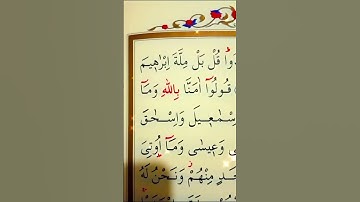 دُوا قُلْ بَلْ مِلَّةَ اِبْرٰهٖيمَ
قُولُٓوا اٰمَنَّا بِاللّٰهِ وَمَٓا
سْمٰعٖيلَ وَاِسْحٰقَ
ى وَعٖيسٰى وَمَٓا اُو۫تِىَ
حَدٍ مِنْهُمْ وَنَحْنُ لَهُ